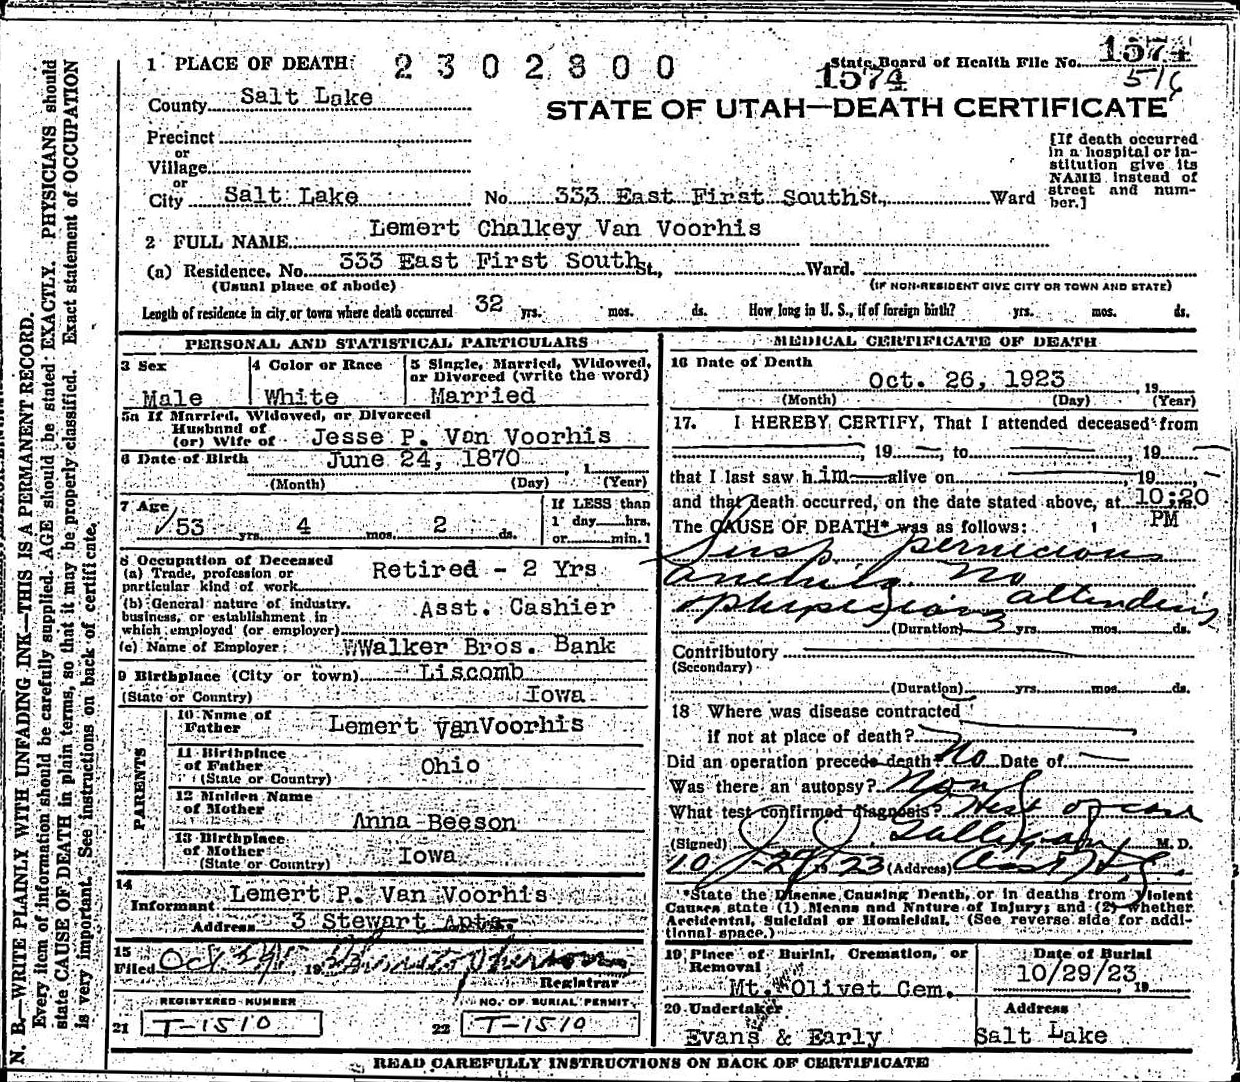 1574
1 PLACE OF DEATH: 2302800 State Board of Health File No. 1574
516
County Salt Lake
STATE OF UTAH—DEATH CERTIFICATE
Precinct
or
Village
or
City Salt Lake No. 333 East First South St., Ward
[If death occurred
in a hospital or in-
stitution give its
NAME instead of
street and num-
ber.]
2 FULL NAME Lemert Chalkey Van Voorhis
(a) Residence. No. 333 East First South St., Ward.
(Usual place of abode) (IF NON-RESIDENT GIVE CITY OR TOWN AND STATE)
Length of residence in city or town where death occurred 32 yrs. mos. ds. How long in U. S., if of foreign birth? yrs. mos. ds.
PERSONAL AND STATISTICAL PARTICULARS
3 Sex Male
4 Color or Race White
5 Single, Married, Widowed,
or Divorced (write the word)
Married
5a If Married, Widowed, or Divorced
Husband of
(or) Wife of Jesse P. Van Voorhis
6 Date of Birth June 24, 1870, 1
(Month) (Day) (Year)
7 Age 53 yrs. 4 mos. 2 ds.
If LESS than
1 day hrs.
or min.]
8 Occupation of Deceased
(a) Trade, profession or
particular kind of work Retired - 2 Yrs
(b) General nature of industry,
business, or establishment in
which employed (or employer) Asst. Cashier
(c) Name of Employer: WWalker Bros. Bank
9 Birthplace (City or town) Liscomb
(State or Country) Iowa
PARENTS
10 Name of
Father Lemert VanVoorhis
11 Birthplace
of Father
(State or Country) Ohio
12 Maiden Name
of Mother Anna Beeson
13 Birthplace
of Mother
(State or Country) Iowa
14
Informant Lemert P. Van Voorhis
Address 3 Stewart Apts.
15
Filed Oct 19
Registrar
REGISTERED NUMBER NO. OF BURIAL PERMIT
21 T-1510 22 T-1510
MEDICAL CERTIFICATE OF DEATH
16 Date of Death
Oct. 26, 1923, 19
(Month) (Day) (Year)
17. I HEREBY CERTIFY, That I attended deceased from
, 19 , to , 19
that I last saw him alive on , 19 ,
and that death occurred, on the date stated above, at 10:20 m.
PM
The CAUSE OF DEATH* was as follows:
Susp. pernicious
No attending
physician
(Duration) 3 yrs. mos. ds.
Contributory
(Secondary)
(Duration) yrs. mos. ds.
18 Where was disease contracted
if not at place of death?
Did an operation precede death? No Date of
Was there an autopsy?
What test confirmed diagnosis? Hist of case
(Signed) M. D.
10/29 1923 (Address)
*State the Disease Causing Death, or in deaths from Violent
Causes state (1) Means and Nature of Injury; and (2) whether
Accidental, Suicidal or Homicidal. (See reverse side for addi-
tional space.)
19 Place of Burial, Cremation, or
Removal
Mt. Olivet Cem.
Date of Burial
10/29/23, 19
20 Undertaker
Evans & Early
Address
Salt Lake
READ CAREFULLY INSTRUCTIONS ON BACK OF CERTIFICATE
N. B.—WRITE PLAINLY WITH UNFADING INK—THIS IS A PERMANENT RECORD.
Every item of information should be carefully supplied. AGE should be stated EXACTLY. PHYSICIANS should
state CAUSE OF DEATH in plain terms, so that it may be properly classified. Exact statement of OCCUPATION
is very important. See instructions on back of certificate.